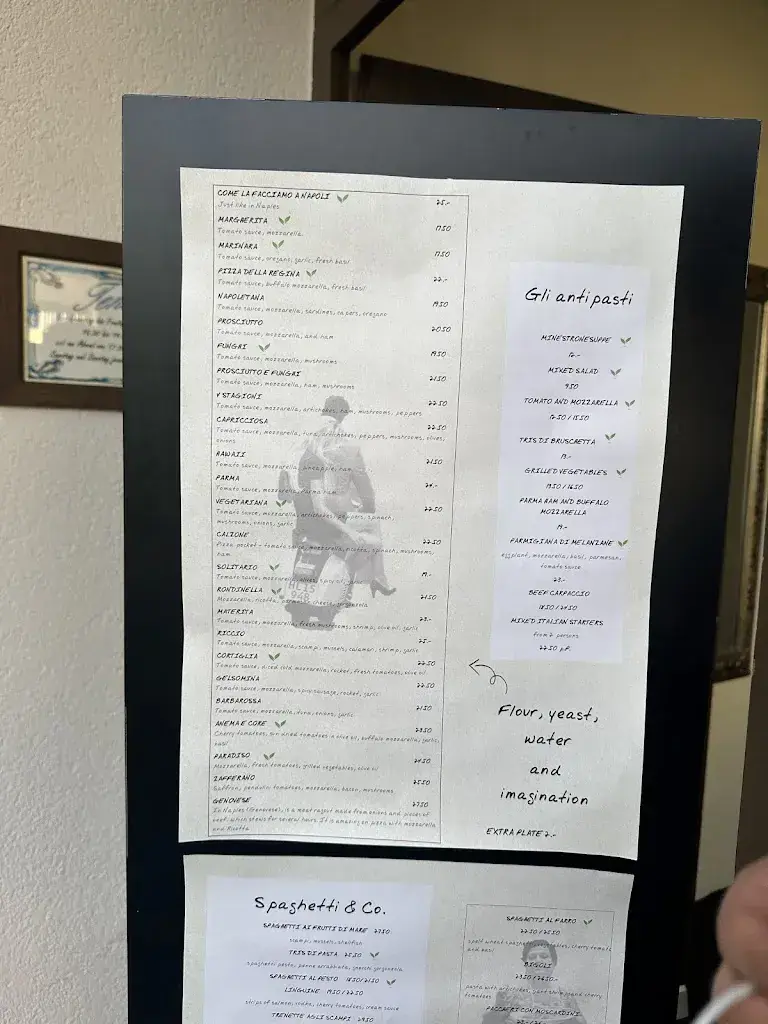 COME LA FACCIAMO A NAPOLI 25.-
Just like in Naples
MARGHERITA 17.50
Tomato sauce, mozzarella.
MARINARA 17.50
Tomato sauce, oregano, garlic, fresh basil
PIZZA DELLA REGINA 22.-
Tomato sauce, buffalo mozzarella, fresh basil
NAPOLETANA 19.50
Tomato sauce, mozzarella, sardines, capers, oregano
PROSCIUTTO 20.50
Tomato sauce, mozzarella, and ham
FUNGHI 19.50
Tomato sauce, mozzarella, mushrooms
PROSCIUTTO E FUNGHI 21.50
Tomato sauce, mozzarella, ham, mushrooms
4 STAGIONI 22.50
Tomato sauce, mozzarella, artichokes, ham, mushrooms, peppers
CAPRICCIOSA 22.50
Tomato sauce, mozzarella, tuna, artichokes, peppers, mushrooms, olives,
onions
HAWAII 21.50
Tomato sauce, mozzarella, pineapple, ham
PARMA 24.-
Tomato sauce, mozzarella, Parma ham
VEGETARIANA 22.50
Tomato sauce, mozzarella, artichokes, peppers, spinach,
mushrooms, onions, garlic
CALZONE 22.50
Pizza pocket - tomato sauce, mozzarella, ricotta, spinach, mushrooms,
ham
SOLITARIO 19.-
Tomato sauce, mozzarella, olives, spicy oil, garlic
RONDINELLA 21.50
Mozzarella, ricotta, parmesan cheese, gorgonzola
MATERITA 23.-
Tomato sauce, mozzarella, fresh mushrooms, shrimp, olive oil, garlic
RICCIO 25.-
Tomato sauce, mozzarella, scampi, mussels, calamari, shrimp, garlic
CORTIGLIA 22.50
Tomato sauce, diced cold mozzarella, rocket, fresh tomatoes, olive oil
GELSOMINA 22.50
Tomato sauce, mozzarella, spicy sausage, rocket, garlic
BARBAROSSA 21.50
Tomato sauce, mozzarella, tuna, onions, garlic
ANEMA E CORE
Cherry tomatoes, sun dried tomatoes in olive oil, buffalo mozzarella, garlic,
basil
PARADISO
Mozzarella, fresh tomatoes, grilled vegetables, olive oil
ZAFFERANO 25.50
Saffron, pendolini tomatoes, mozzarella, bacon, mushrooms
GENOVESE 27.50
In Naples (Genovese), is a meat ragout made from onions and pieces of
beef, which stews for several hours. It is amazing on pizza with mozzarella
and Ricotta
Gli antipasti
MINESTRONESUPPE
12.-
MIXED SALAD
9.50
TOMATO AND MOZZARELLA
12.50 / 15.50
TRIS DI BRUSCHETTA
13.-
GRILLED VEGETABLES
13.50 / 16.50
PARMA HAM AND BUFFALO
MOZZARELLA
19.-
PARMIGIANA DI MELANZANE
eggplant, mozzarella, basil, parmesan,
tomato sauce
23.-
BEEF CARPACCIO
18.50 / 24.50
MIXED ITALIAN STARTERS
from 2 persons
22.50 p.P.
Flour, yeast,
water
and
imagination
EXTRA PLATE 2.-
Spaghetti & Co.
SPAGHETTI AI FRUTTI DI MARE 27.50
scampi, mussels, shellfish
TRIS DI PASTA 25.50
spaghetti pesto, penne arrabbiata, gnocchi gorgonzola
SPAGHETTI AL PESTO 18.50 / 21.50
LINGUINE 19.50 / 22.50
strips of salmon, vodka, cherry tomatoes, cream sauce
TRENETTE AGLI SCAMPI 29.50
SPAGHETTI AL FARRO
22.50 / 25.50
spelt wheat spaghetti, vegetables, cherry tomatoes
and basil
BIGOLI
23.50 / 26.50.-
pasta with artichokes,
tomatoes
PACCHERI CON MOSCARDINI